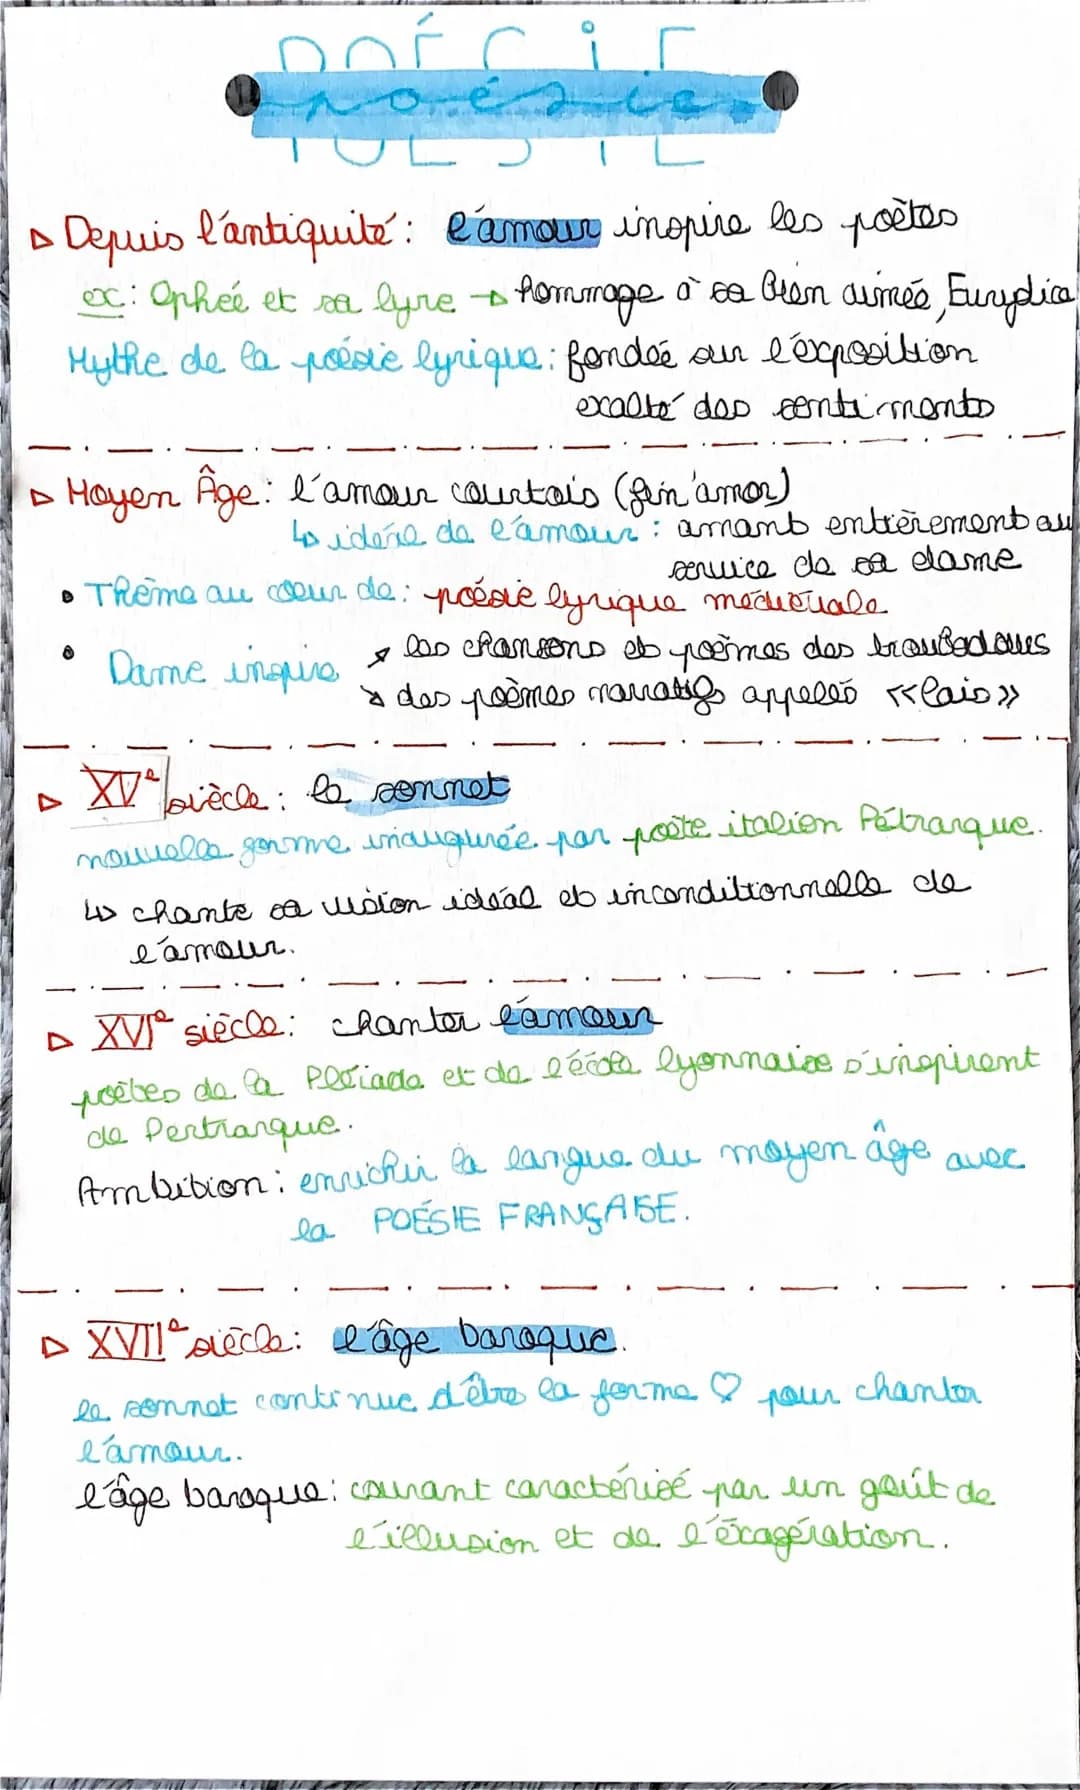 POÉSIE
poésie
▷ Depuis l'antiquité : l'amour inspire les poètes
ex : Ophée et sa lyre → hommage à sa bien aimée, Eurydice
Mythe de la poésie lyrique : fondée sur l'exposition
exalté des sentiments
▷ Moyen Âge : l'amour courtois (fin'amor)
↳ idéal de l'amour : amant entièrement au
service de sa dame
• Thème au cœur de : poésie lyrique médiévale
• Dame inspire ↗ les chansons et poèmes des troubadours
↘ des poèmes narratifs appelés «lais»
▷ XVe siècle : le sonnet
nouvelle forme inaugurée par poète italien Pétrarque.
↳ chante sa vision idéal et inconditionnelle de
l'amour.
▷ XVIe siècle : chanter l'amour
poètes de la Pleiade et de l'école lyonnaise s'inspirent
de Pertrarque.
Ambition : enrichir la langue du moyen âge avec
la POÉSIE FRANÇAISE.
▷ XVIIe siècle : l'âge baroque.
le sonnet continue d'être la forme ♡ pour chanter
l'amour.
l'âge baroque : courant caractérisé par un goût de
l'illusion et de l'éxagération.